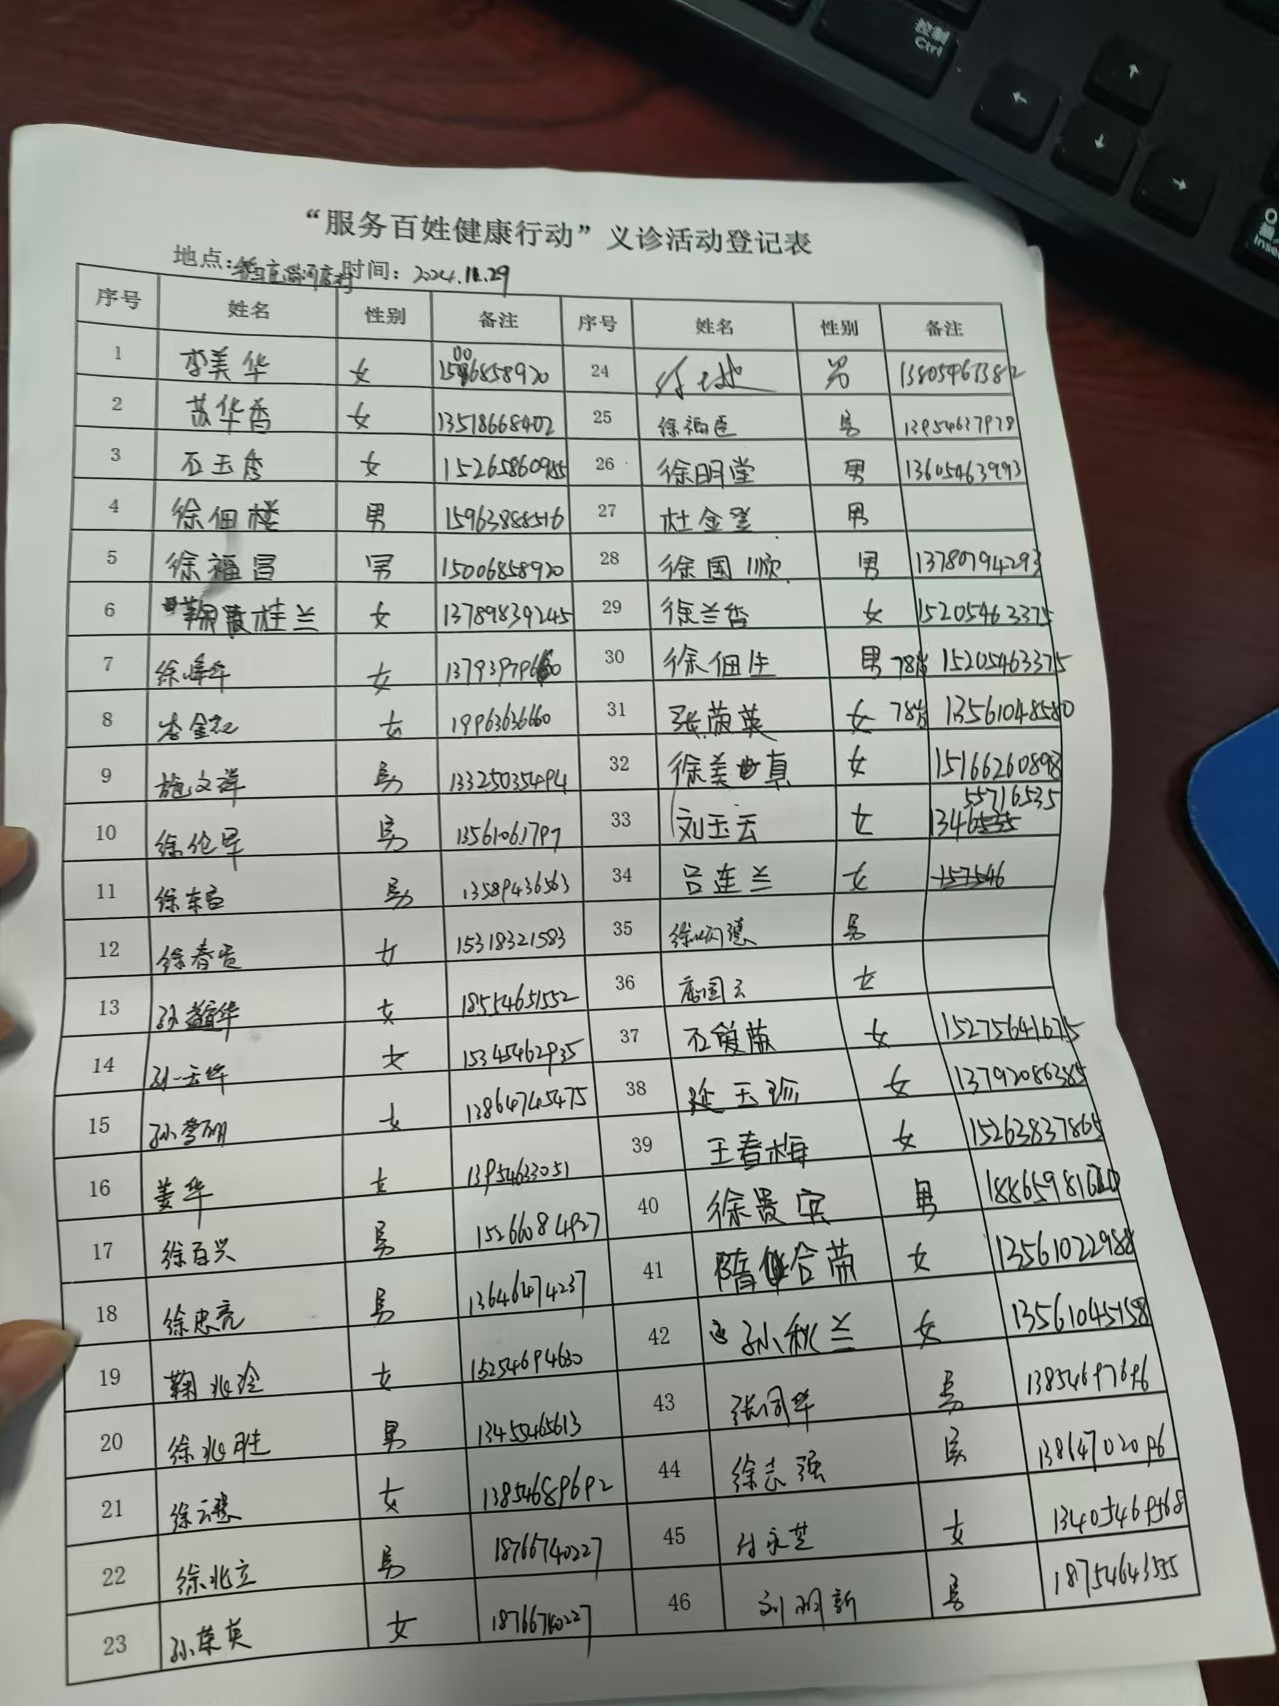 控制
Ctrl
←
↑
↓
→
“服务百姓健康行动”义诊活动登记表
地点: 时间: 2024.11.29
序号 姓名 性别 备注 序号 姓名 性别 备注
1 李美华 女 15006858920 24 男
2 苏华香 女 13518668402 25 徐福臣 男 13954637978
3 石玉秀 女 15265860955 26 徐明堂 男 13605463993
4 徐佃楼 男 15963888516 27 杜金星 男
5 徐福昌 男 15006858920 28 徐国顺 男 13780794293
6 桂兰 女 13789839245 29 徐兰香 女 15205463375
7 徐 华 女 30 徐佃生 男 78岁 15205463375
8 李金 女 19963636660 31 张荣英 女 78岁 13561048580
9 施文祥 男 13325035494 32 徐美真 女 15166260898
10 徐伦早 男 13561061797 33 刘玉云 女 13455716535
11 徐东臣 男 13589436563 34 吕连兰 女
12 徐春 女 15318321583 35 徐炳德 男
13 孙 华 女 18554651552 36 国云 女
14 孙云华 女 15345462935 37 石 荣 女 15275641675
15 孙雪 女 13864745475 38 延玉珍 女 13792086385
16 姜华 女 13954633051 39 王春梅 女 15263837865
17 徐百兴 男 15266084927 40 徐贵宾 男
18 徐忠亮 男 13646474237 41 隋合荣 女 13561022988
19 鞠兆玲 女 15254694630 42 孙秋兰 女 13561045158
20 徐兆胜 男 13455465613 43 张同华 男 13854697696
21 徐云 女 13854689692 44 徐志强 男 13864702096
22 徐兆立 男 18766740227 45 付永芝 女 13405469568
23 孙荣英 女 18766740227 46 刘 新 男 18754643555